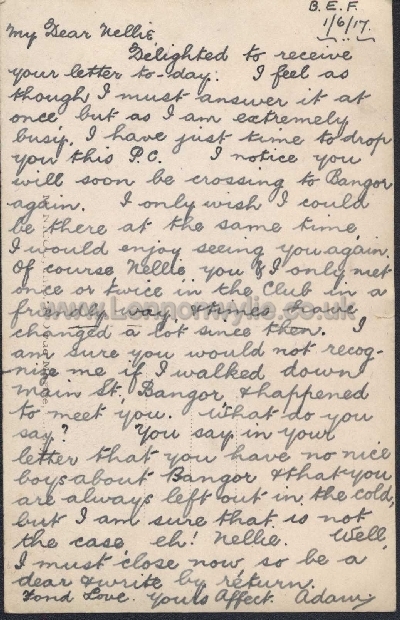 B.E.F.
1/6/17.
My Dear Nellie,
Delighted to receive
your letter to-day. I feel as
though I must answer it at
once, but as I am extremely
busy, I have just time to drop
you this P.C. I notice you
will soon be crossing to Bangor
again. I only wish I could
be there at the same time,
I would enjoy seeing you again.
Of course Nellie you & I only met
once or twice in the Club in a
friendly way, & times have
changed a lot since then. I
am sure you would not recog-
nise me if I walked down
Main St, Bangor, & happened
to meet you. What do you
say? You say in your
letter that you have no nice
boys about Bangor & that you
are always left out in the cold,
but I am sure that is not
the case, eh! Nellie. Well,
I must close now, so be a
dear & write by return.
Fond Love. Yours Affect. Adam